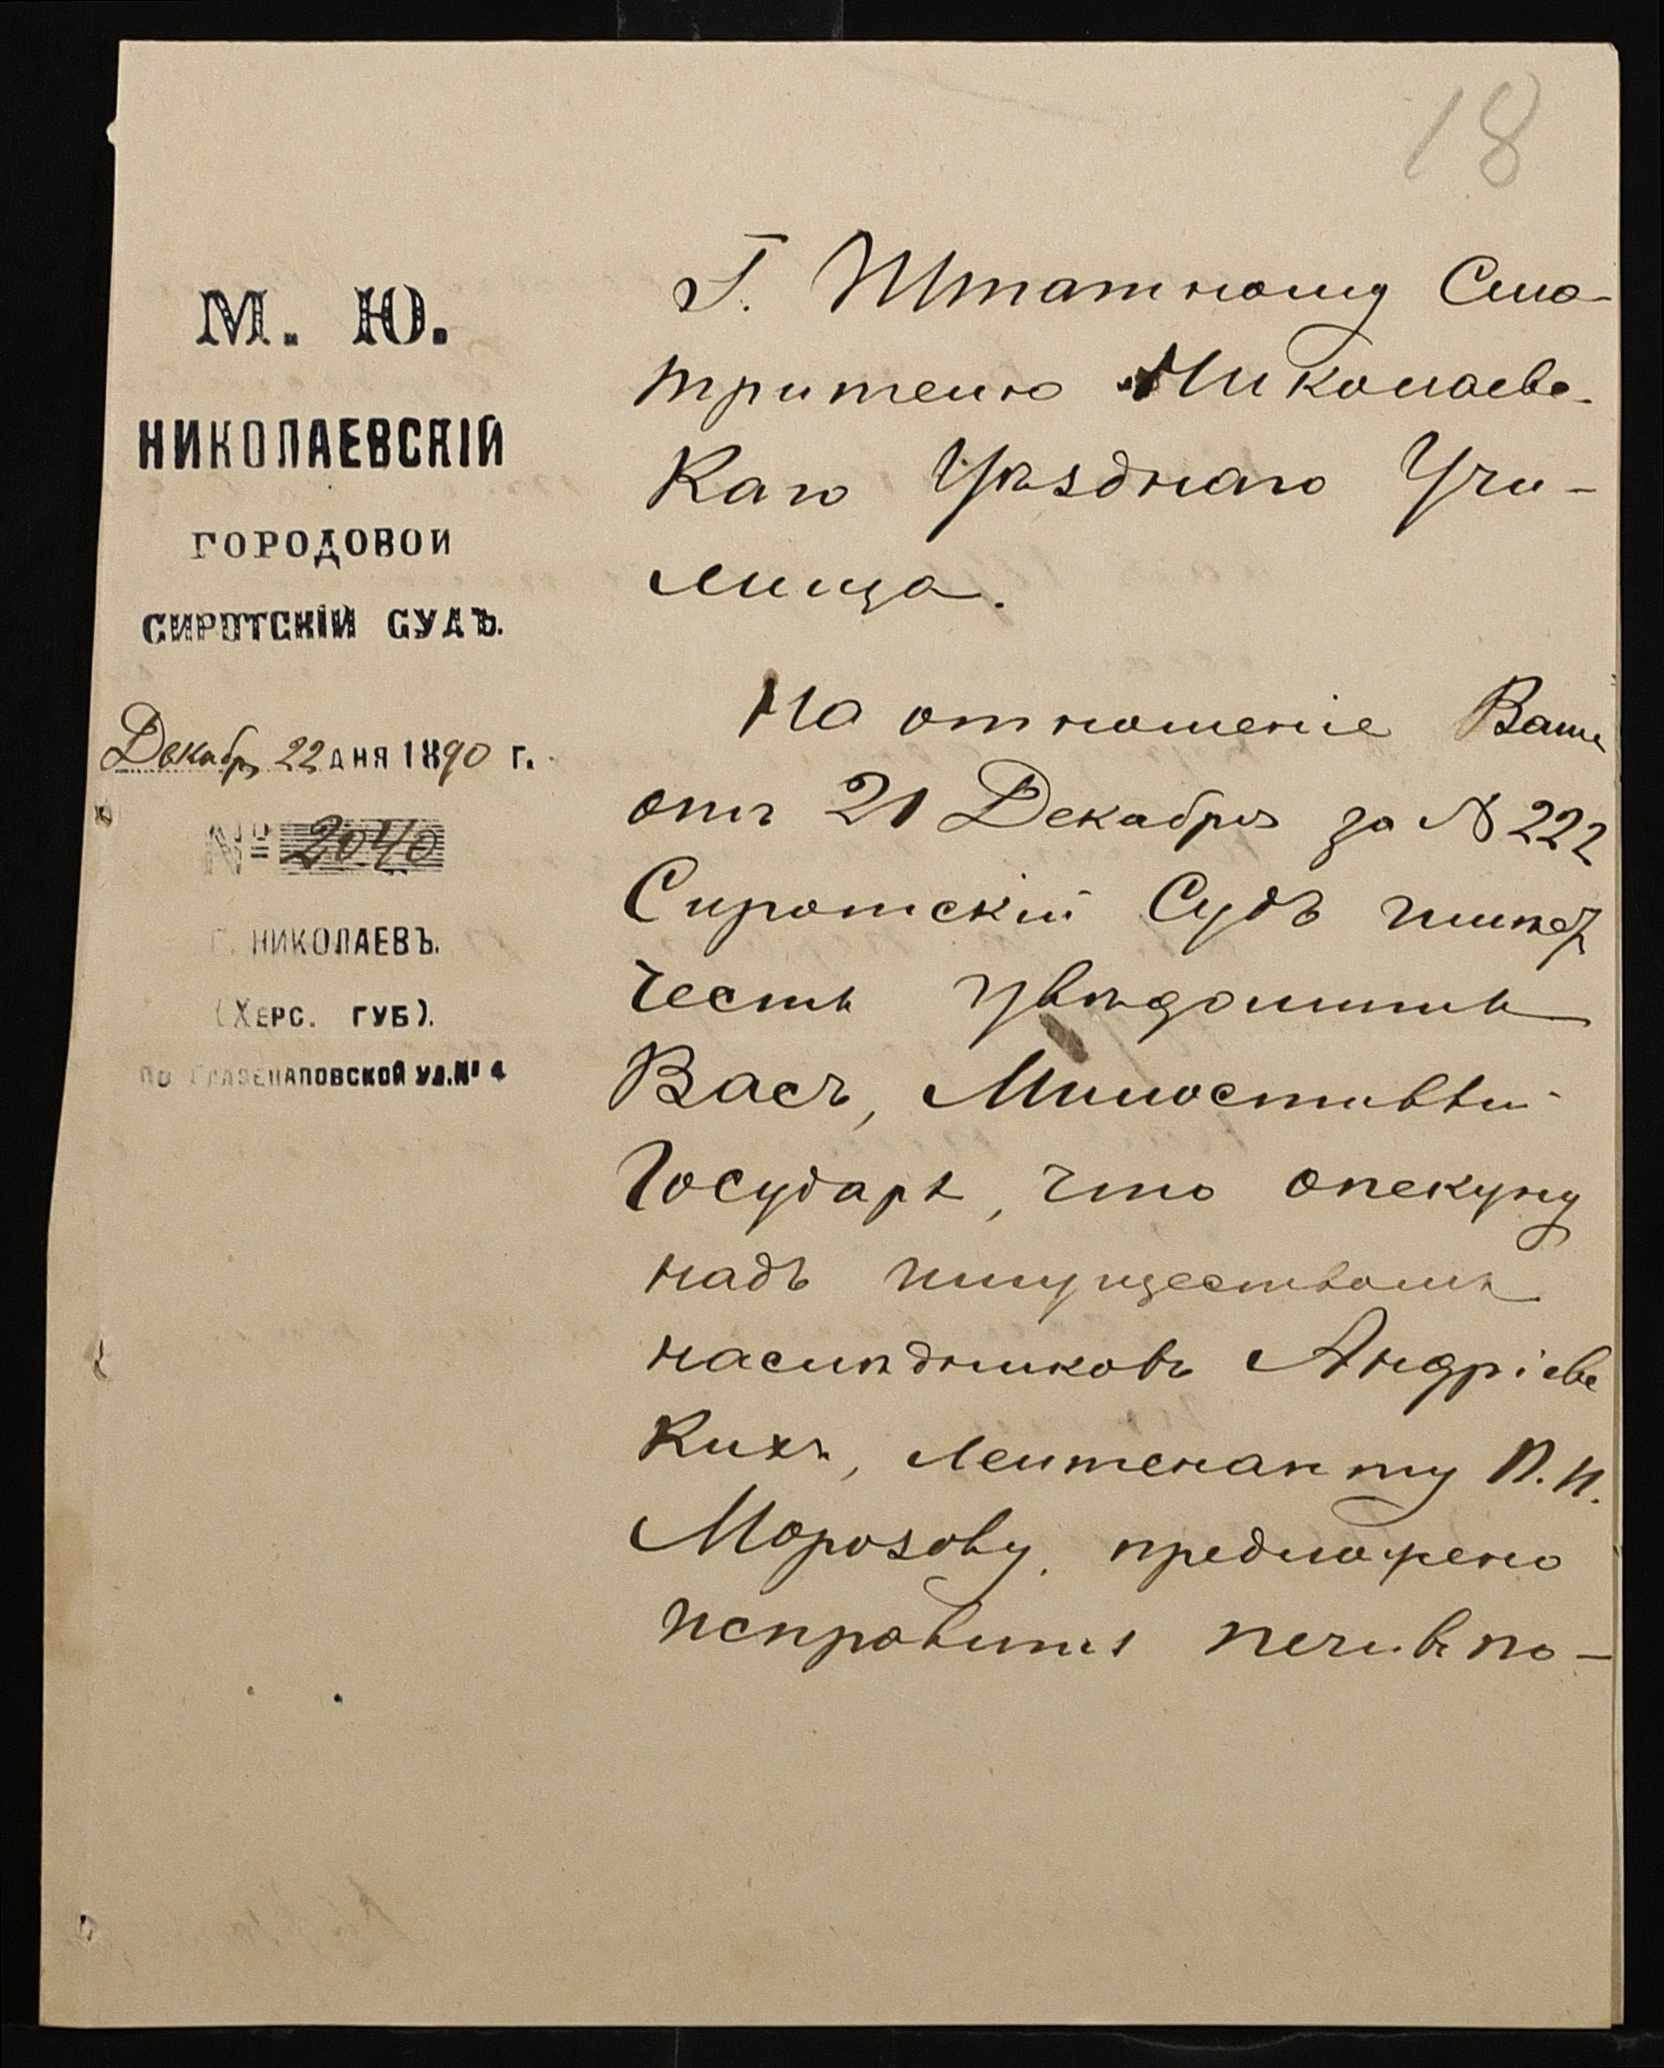 18
М. Ю.
НИКОЛАЕВСКІЙ
ГОРОДОВОЙ
СИРОТСКІЙ СУДЪ.
Декабря 22 ДНЯ 1890 Г.
№ 2040
Г. НИКОЛАЕВЪ.
(ХЕРС. ГУБ).
ПО ГЛАЗЕНАПОВСКОЙ УЛ. № 4
Г. Штатному Смо-
трителю Николаевс-
каго Уѣзднаго Учи-
лища.
На отношеніе Ваше
отъ 21 Декабря за № 222
Сиротскій Судъ имѣетъ
честь увѣдомить
Васъ, Милостивый
Государь, что опекуну
надъ имуществомъ
наслѣдниковъ Андріевс
кихъ, Лейтенанту П. И.
Морозову, предложено
исправить печи въ по-